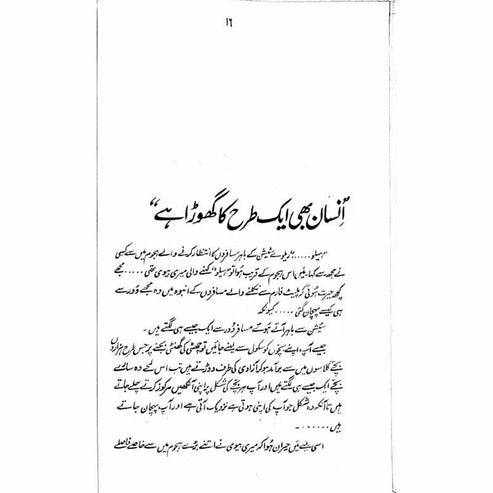 ۱۶
"اِنسان بھی ایک طرح کا گھوڑا ہے"
"ہیلو ....." ریلوے سٹیشن کے باہر مسافروں کا انتظار کرنے والے ہجوم میں سے کسی
نے مجھ سے کہا۔ میں اس ہجوم کے قریب ہوا تو "ہیلو" کہنے والی میری بیوی تھی ..... مجھے
کچھ حیرت ہوئی کہ پلیٹ فارم سے نکلنے والے مسافروں کے انبوہ میں وہ مجھے دُور سے
ہی کیسے پہچان گئی ..... کیونکہ
سٹیشن سے باہر آتے ہُوئے مسافر دُور سے ایک جیسے ہی لگتے ہیں۔
جیسے آپ اپنے بچّوں کو سکول سے لینے جائیں تو چھٹی کی گھنٹی بجنے پر جس طرح ہزاروں
بچّے کلاسوں میں سے برآمد ہو کر آزادی کی طرف دوڑتے ہیں تب اس لمحے وہ سارے
بچّے ایک جیسے ہی لگتے ہیں اور آپ ہر بچّے کی شکل پر اپنی آنکھیں مرکوز کرتے چلے جاتے
ہیں تا آنکہ وہ شکل جو آپ کی اپنی ہوتی ہے نزدیک آتی ہے اور آپ پہچان جاتے
ہیں ......۔
اسی لیے میں حیران ہُوا کہ میری بیوی نے اتنے بڑے ہجوم میں سے خاصے فاصلے